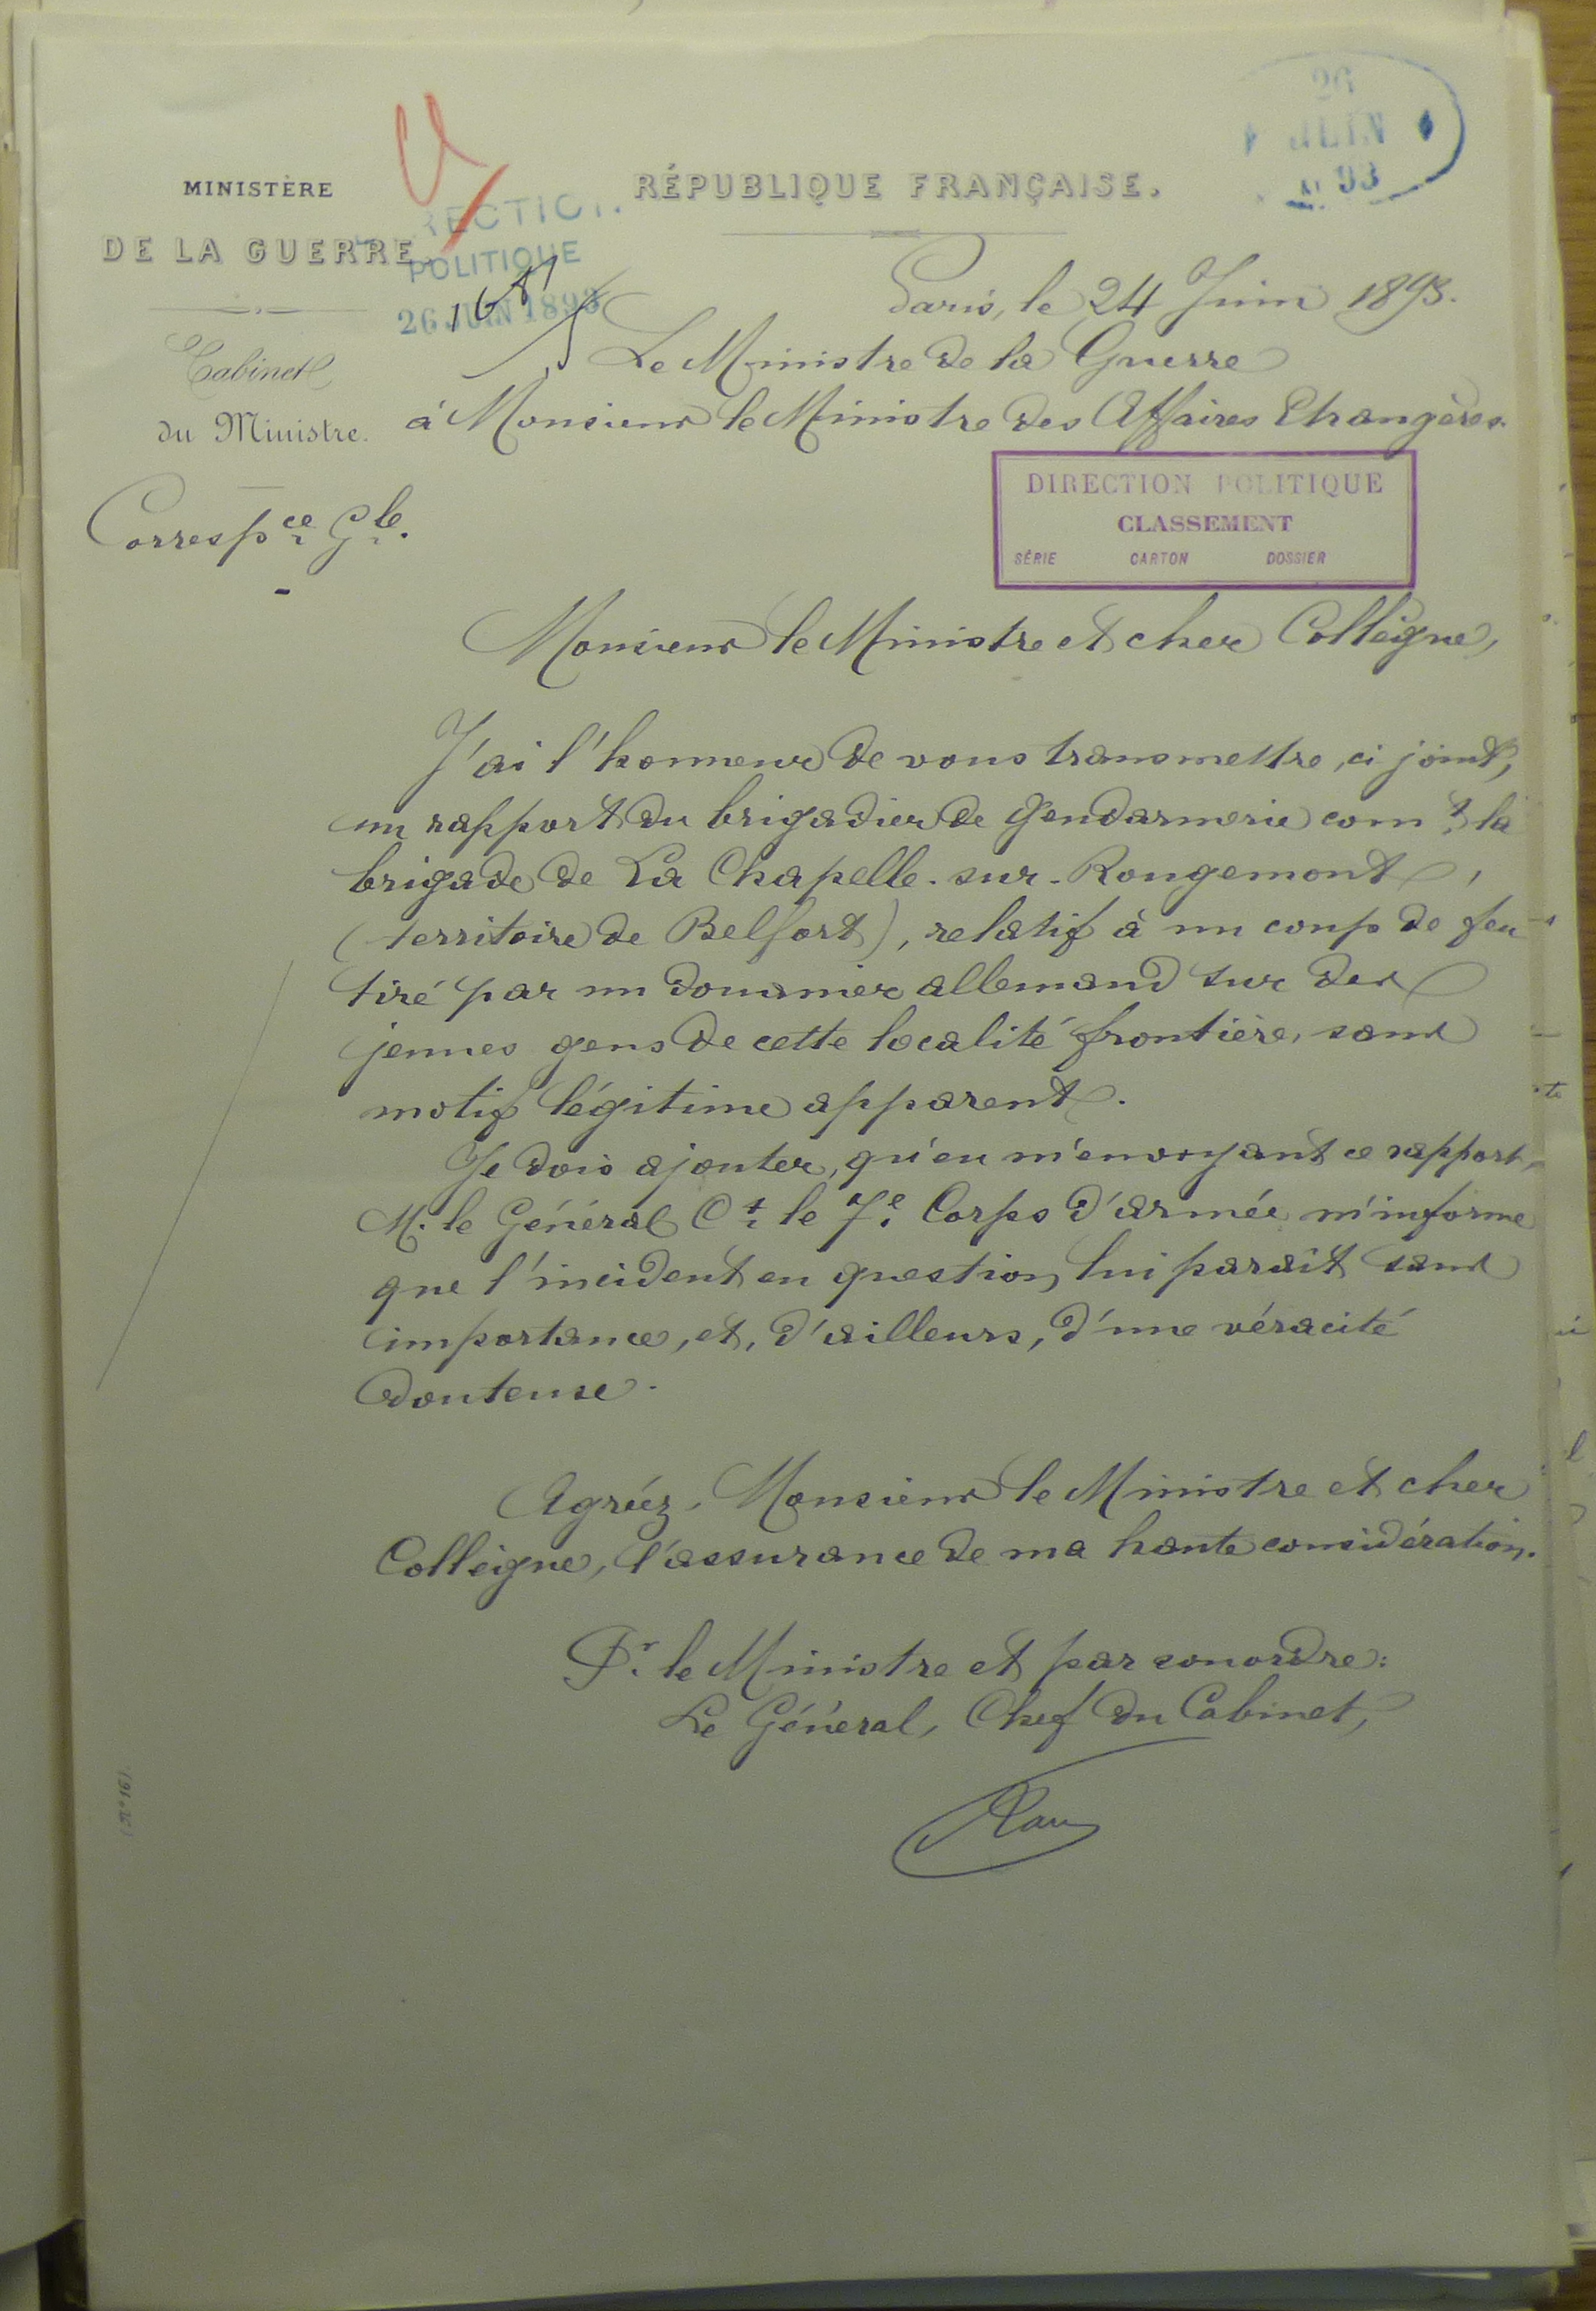 MINISTÈRE
DE LA GUERRE.
Cabinet
du Ministre.
Corresp.ce G.le
RÉPUBLIQUE FRANÇAISE.
26
JUIN
93
POLITIQUE
26 JUIN 1893
Paris, le 24 Juin 1893.
Le Ministre de la Guerre
à Monsieur le Ministre des Affaires Etrangères.
DIRECTION POLITIQUE
CLASSEMENT
SÉRIE CARTON DOSSIER
Monsieur le Ministre et cher Collègue,
J'ai l'honneur de vous transmettre, ci joint,
un rapport du brigadier de Gendarmerie com.t la
brigade de La Chapelle-sur-Rougemont,
(territoire de Belfort), relatif à un coup de feu
tiré par un douanier allemand sur des
jeunes gens de cette localité frontière, sans
motif légitime apparent.
Je dois ajouter, qu'en m'envoyant ce rapport,
M. le Général C.t le 7.e Corps d'armée m'informe
que l'incident en question lui parait sans
importance, et, d'ailleurs, d'une véracité
douteuse.
Agréez, Monsieur le Ministre et cher
Collègue, l'assurance de ma haute considération.
P.r le Ministre et par son ordre:
Le Général, Chef du Cabinet,
(N° 16)